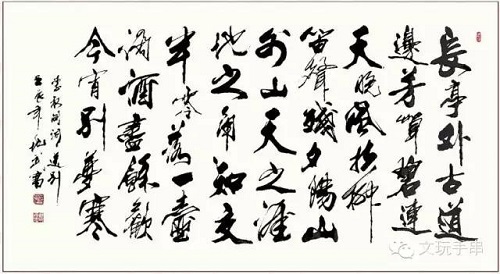 長亭外古道
邊芳草碧連
天晚風拂柳
笛聲殘夕陽山
外山天之涯
地之角知交
半零落一壺
濁酒盡餘歡
今宵别夢寒
李叔同词送别
壬辰年書
文玩手串